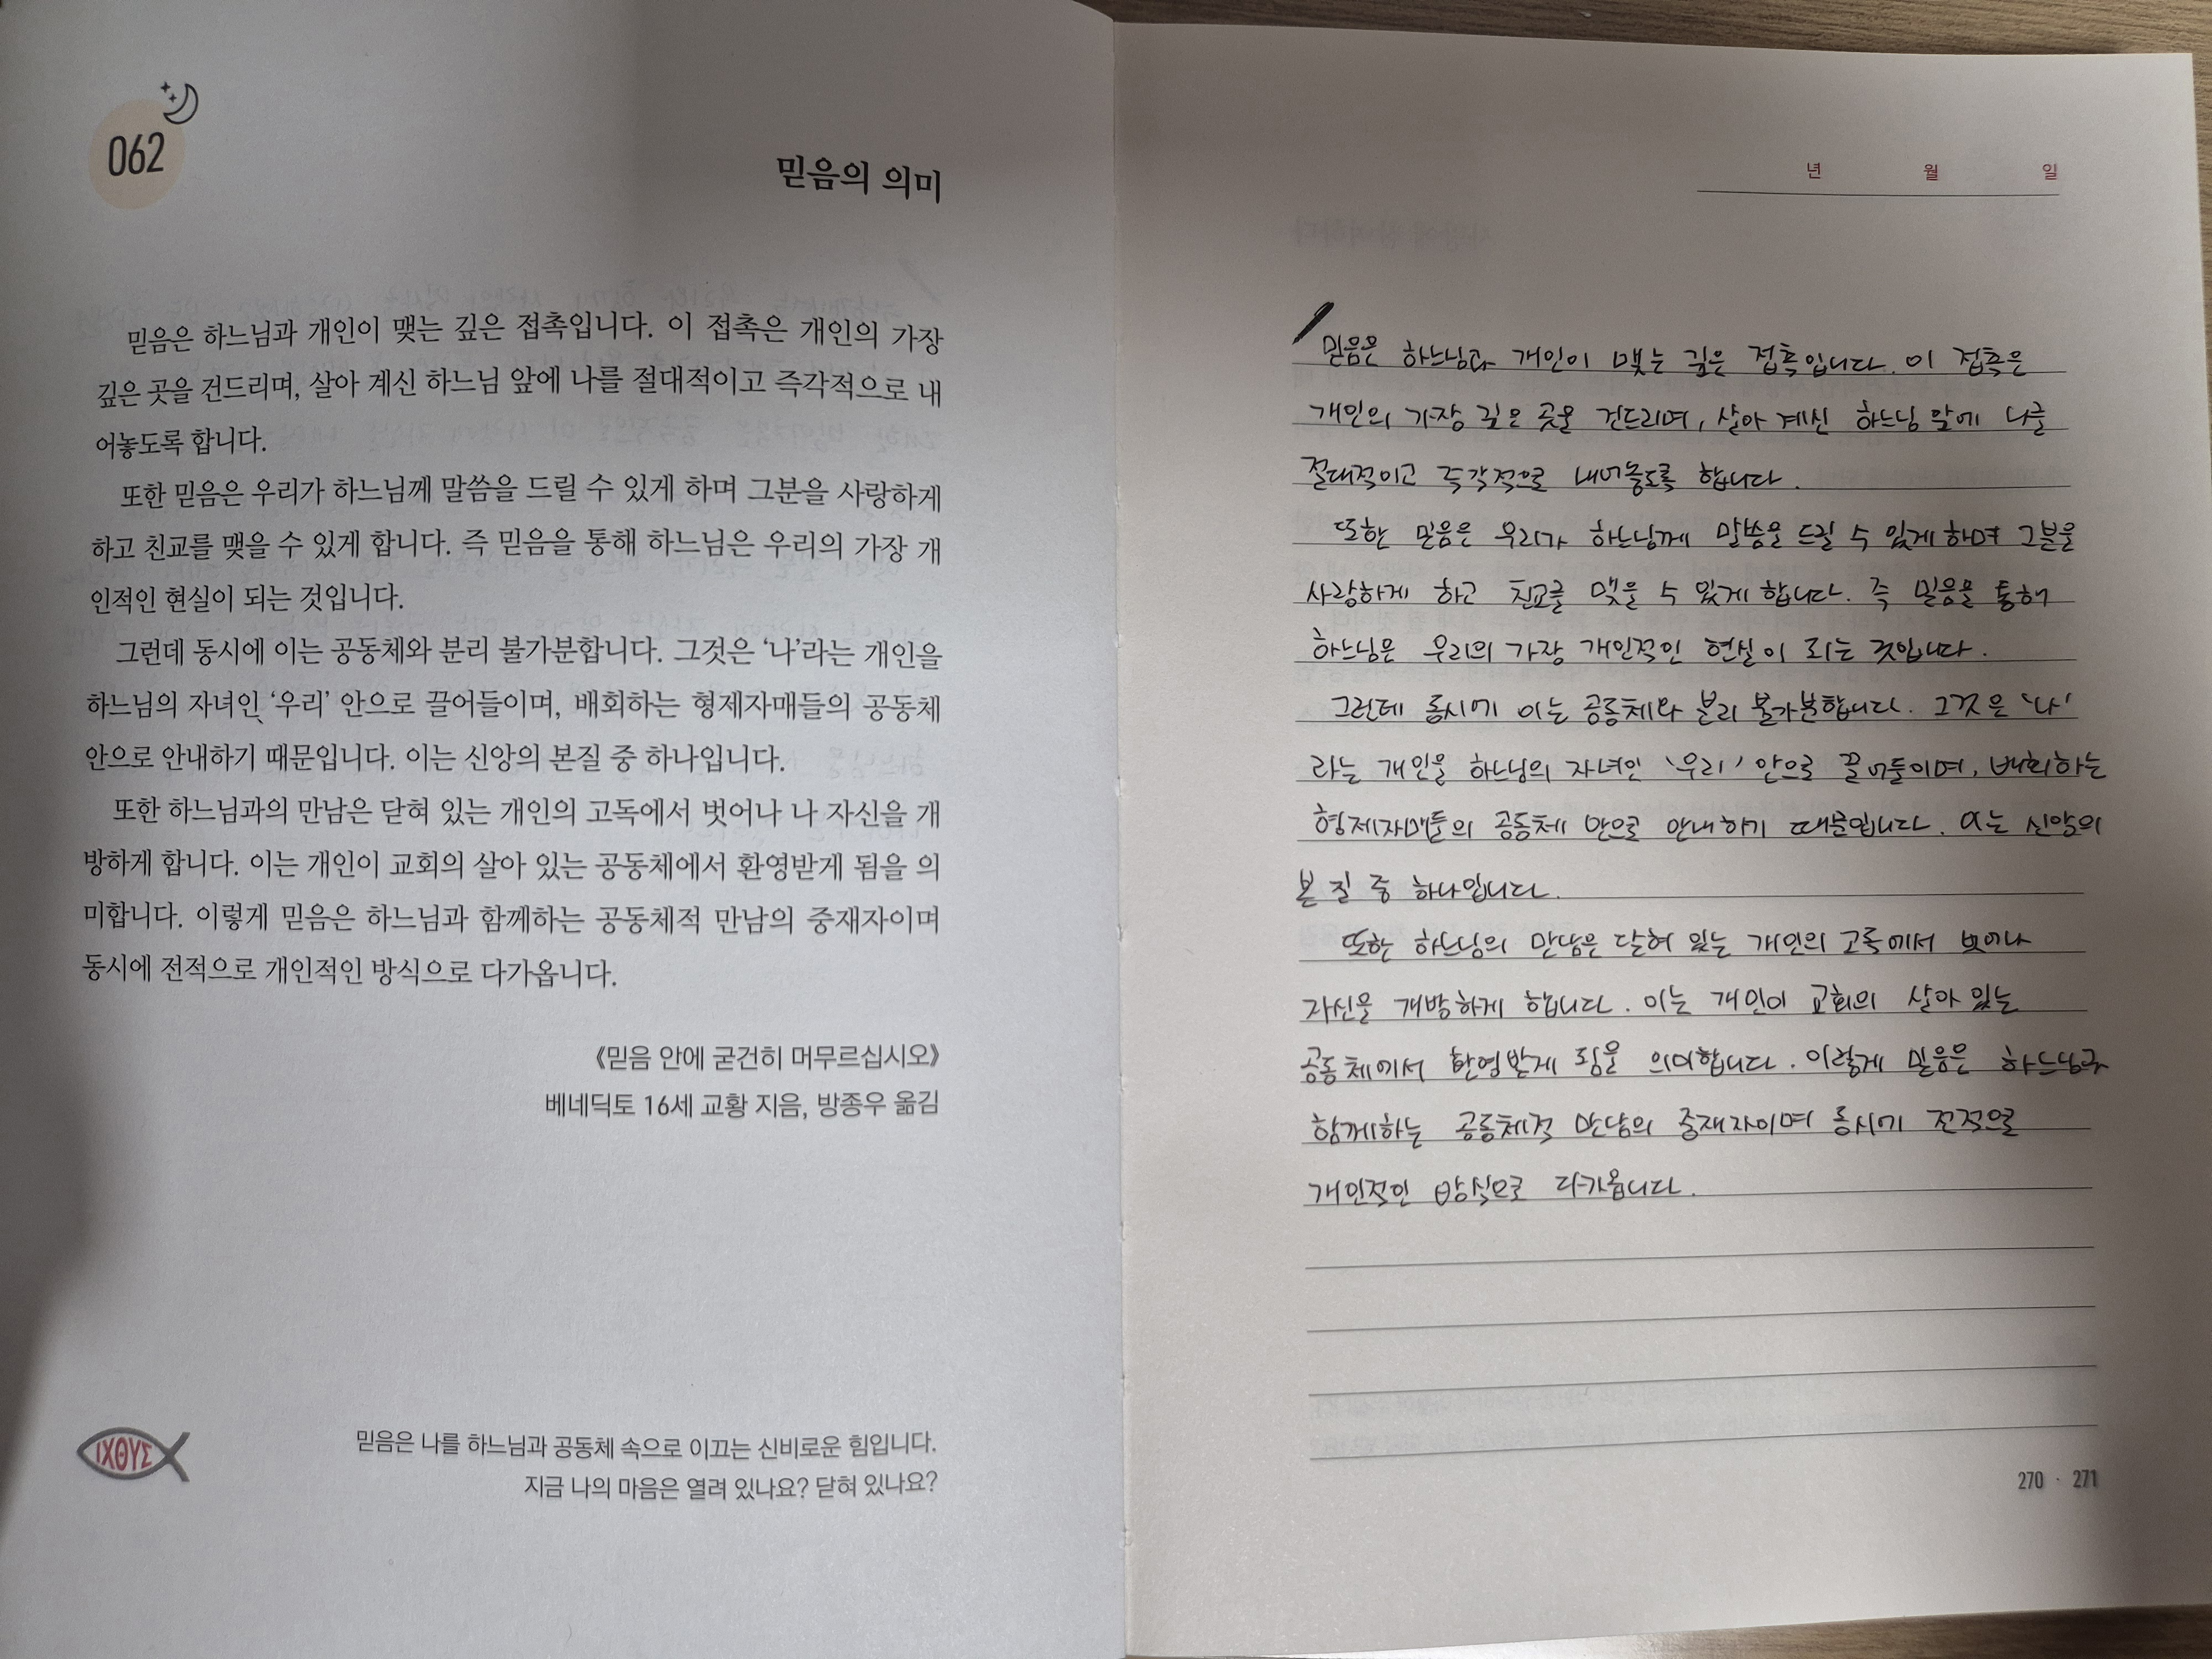 062
믿음의 의미
믿음은 하느님과 개인이 맺는 깊은 접촉입니다. 이 접촉은 개인의 가장
깊은 곳을 건드리며, 살아 계신 하느님 앞에 나를 절대적이고 즉각적으로 내
어놓도록 합니다.
또한 믿음은 우리가 하느님께 말씀을 드릴 수 있게 하며 그분을 사랑하게
하고 친교를 맺을 수 있게 합니다. 즉 믿음을 통해 하느님은 우리의 가장 개
인적인 현실이 되는 것입니다.
그런데 동시에 이는 공동체와 분리 불가분합니다. 그것은 ‘나’라는 개인을
하느님의 자녀인 ‘우리’ 안으로 끌어들이며, 배회하는 형제자매들의 공동체
안으로 안내하기 때문입니다. 이는 신앙의 본질 중 하나입니다.
또한 하느님과의 만남은 닫혀 있는 개인의 고독에서 벗어나 나 자신을 개
방하게 합니다. 이는 개인이 교회의 살아 있는 공동체에서 환영받게 됨을 의
미합니다. 이렇게 믿음은 하느님과 함께하는 공동체적 만남의 중재자이며
동시에 전적으로 개인적인 방식으로 다가옵니다.
《믿음 안에 굳건히 머무르십시오》
베네딕토 16세 교황 지음, 방종우 옮김
ΙΧΘΥΣ
믿음은 나를 하느님과 공동체 속으로 이끄는 신비로운 힘입니다.
지금 나의 마음은 열려 있나요? 닫혀 있나요?
년 월 일
믿음은 하느님과 개인이 맺는 깊은 접촉입니다. 이 접촉은
개인의 가장 깊은 곳을 건드리며, 살아 계신 하느님 앞에 나를
절대적이고 즉각적으로 내어놓도록 합니다.
또한 믿음은 우리가 하느님께 말씀을 드릴 수 있게 하며 그분을
사랑하게 하고 친교를 맺을 수 있게 합니다. 즉 믿음을 통해
하느님은 우리의 가장 개인적인 현실이 되는 것입니다.
그런데 동시에 이는 공동체와 분리 불가분합니다. 그것은 ‘나’
라는 개인을 하느님의 자녀인 ‘우리’ 안으로 끌어들이며, 배회하는
형제자매들의 공동체 안으로 안내하기 때문입니다. 이는 신앙의
본질 중 하나입니다.
또한 하느님의 만남은 닫혀 있는 개인의 고독에서 벗어나
자신을 개방하게 합니다. 이는 개인이 교회의 살아 있는
공동체에서 환영받게 됨을 의미합니다. 이렇게 믿음은 하느님과
함께하는 공동체적 만남의 중재자이며 동시에 전적으로
개인적인 방식으로 다가옵니다.
270 · 271